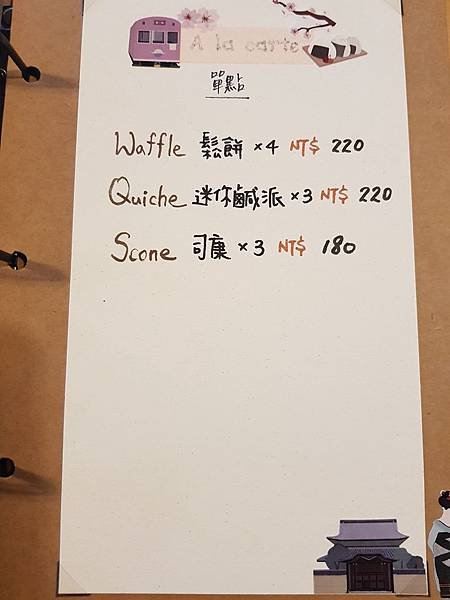 A la carte
單點
Waffle 鬆餅 ×4 NT$ 220
Quiche 迷你鹹派 ×3 NT$ 220
Scone 司康 ×3 NT$ 180